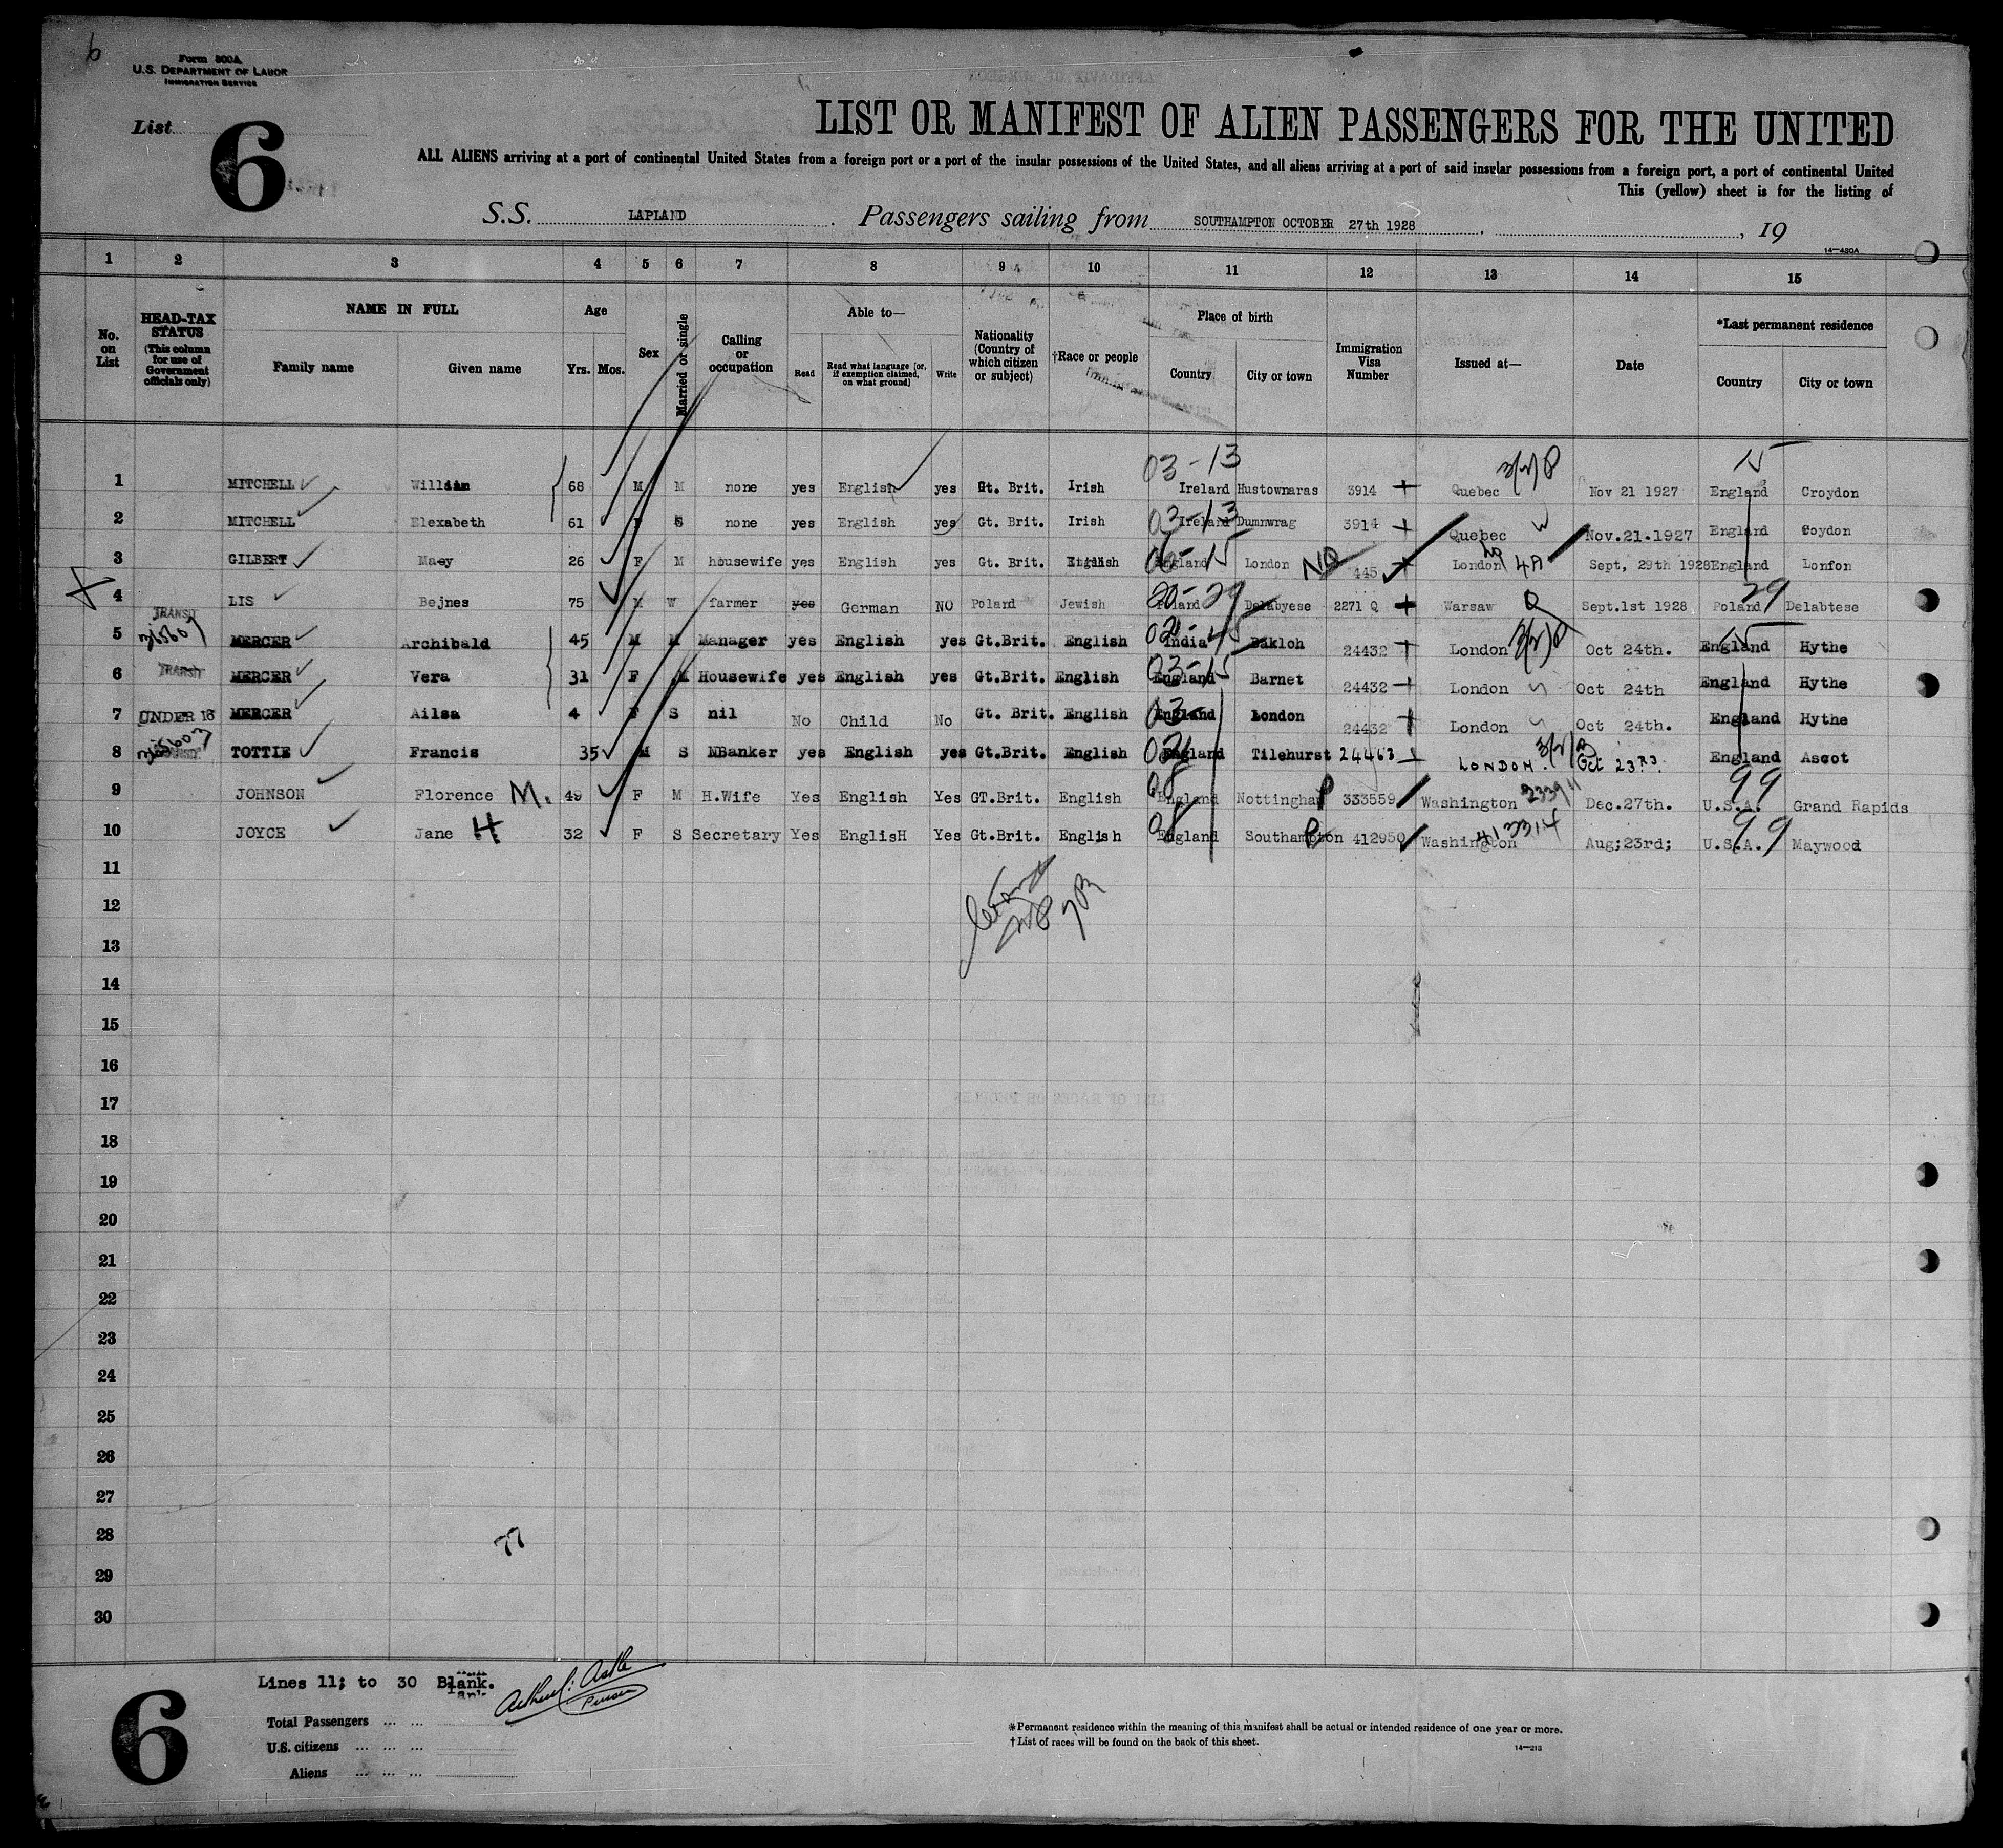 6
Form 500A
U.S. DEPARTMENT OF LABOR
IMMIGRATION SERVICE
List 6
LIST OR MANIFEST OF ALIEN PASSENGERS FOR THE UNITED
ALL ALIENS arriving at a port of continental United States from a foreign port or a port of the insular possessions of the United States, and all aliens arriving at a port of said insular possessions from a foreign port, a port of continental United
This (yellow) sheet is for the listing of
S.S. LAPLAND. Passengers sailing from SOUTHAMPTON OCTOBER 27th 1928, , 19
14—430A
1 2 3 4 5 6 7 8 9 10 11 12 13 14 15
No. on List
HEAD-TAX STATUS (This column for use of Government officials only)
NAME IN FULL
Family name Given name
Age
Yrs. Mos.
Sex
Married or single
Calling or occupation
Able to—
Read Read what language [or, if exemption claimed, on what ground] Write
Nationality (Country of which citizen or subject)
†Race or people
Place of birth
Country City or town
Immigration Visa Number
Issued at—
Date
*Last permanent residence
Country City or town
03-13 15
1 MITCHELL William 68 M M none yes English yes Gt. Brit. Irish Ireland Hustownaras 3914 Quebec Nov 21 1927 England Croydon
2 MITCHELL Elexabeth 61 F S none yes English yes Gt. Brit. Irish 03-13 Ireland Dumnwrag 3914 Quebec Nov.21.1927 England Coydon
3 GILBERT Maey 26 F M housewife yes English yes Gt. Brit. English 06-15 England London NQ 445 London 4A Sept, 29th 1928 England Lonfon
4 LIS Bejnes 75 M W farmer yes German NO Poland Jewish 29 Poland Delabyese 2271 Q Warsaw Q Sept.1st 1928 Poland 29 Delabtese
TRANSIT
5 MERCER Archibald 45 M M Manager yes English yes Gt.Brit. English India Bakloh 24432 London Oct 24th. England 15 Hythe
6 TRANSIT MERCER Vera 31 F M Housewife yes English yes Gt.Brit. English 03-15 England Barnet 24432 London Oct 24th England Hythe
7 UNDER 16 MERCER Ailsa 4 F S nil No Child No Gt. Brit. English 03- England London 24432 London Oct 24th. England Hythe
8 TOTTIE Francis 35 M S NBanker yes English yes Gt.Brit. English England Tilehurst 24463 LONDON. Oct 23RD. England Ascot
9 JOHNSON Florence M. 49 F M H.Wife Yes English Yes GT.Brit. English 08 England Nottingham P 333559 Washington Dec.27th. U.S.A. 99 Grand Rapids
10 JOYCE Jane H 32 F S Secretary Yes EnglisH Yes Gt.Brit. English England Southampton P 412950 Washington Aug;23rd; U.S.A. 99 Maywood
11
12
13
14
15
16
17
18
19
20
21
22
23
24
25
26
27
28 77
29
30
Lines 11; to 30 Blank.
Purser
6
Total Passengers ... ...
U.S. citizens ... ... ...
Aliens ... ... ...
*Permanent residence within the meaning of this manifest shall be actual or intended residence of one year or more.
†List of races will be found on the back of this sheet.
14—213